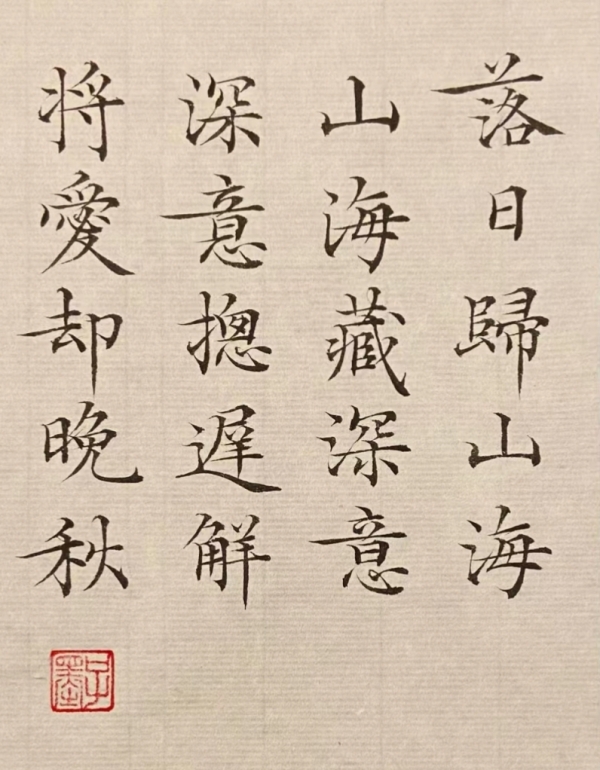 落日歸山海
山海藏深意
深意摠遲解
将愛却晚秋